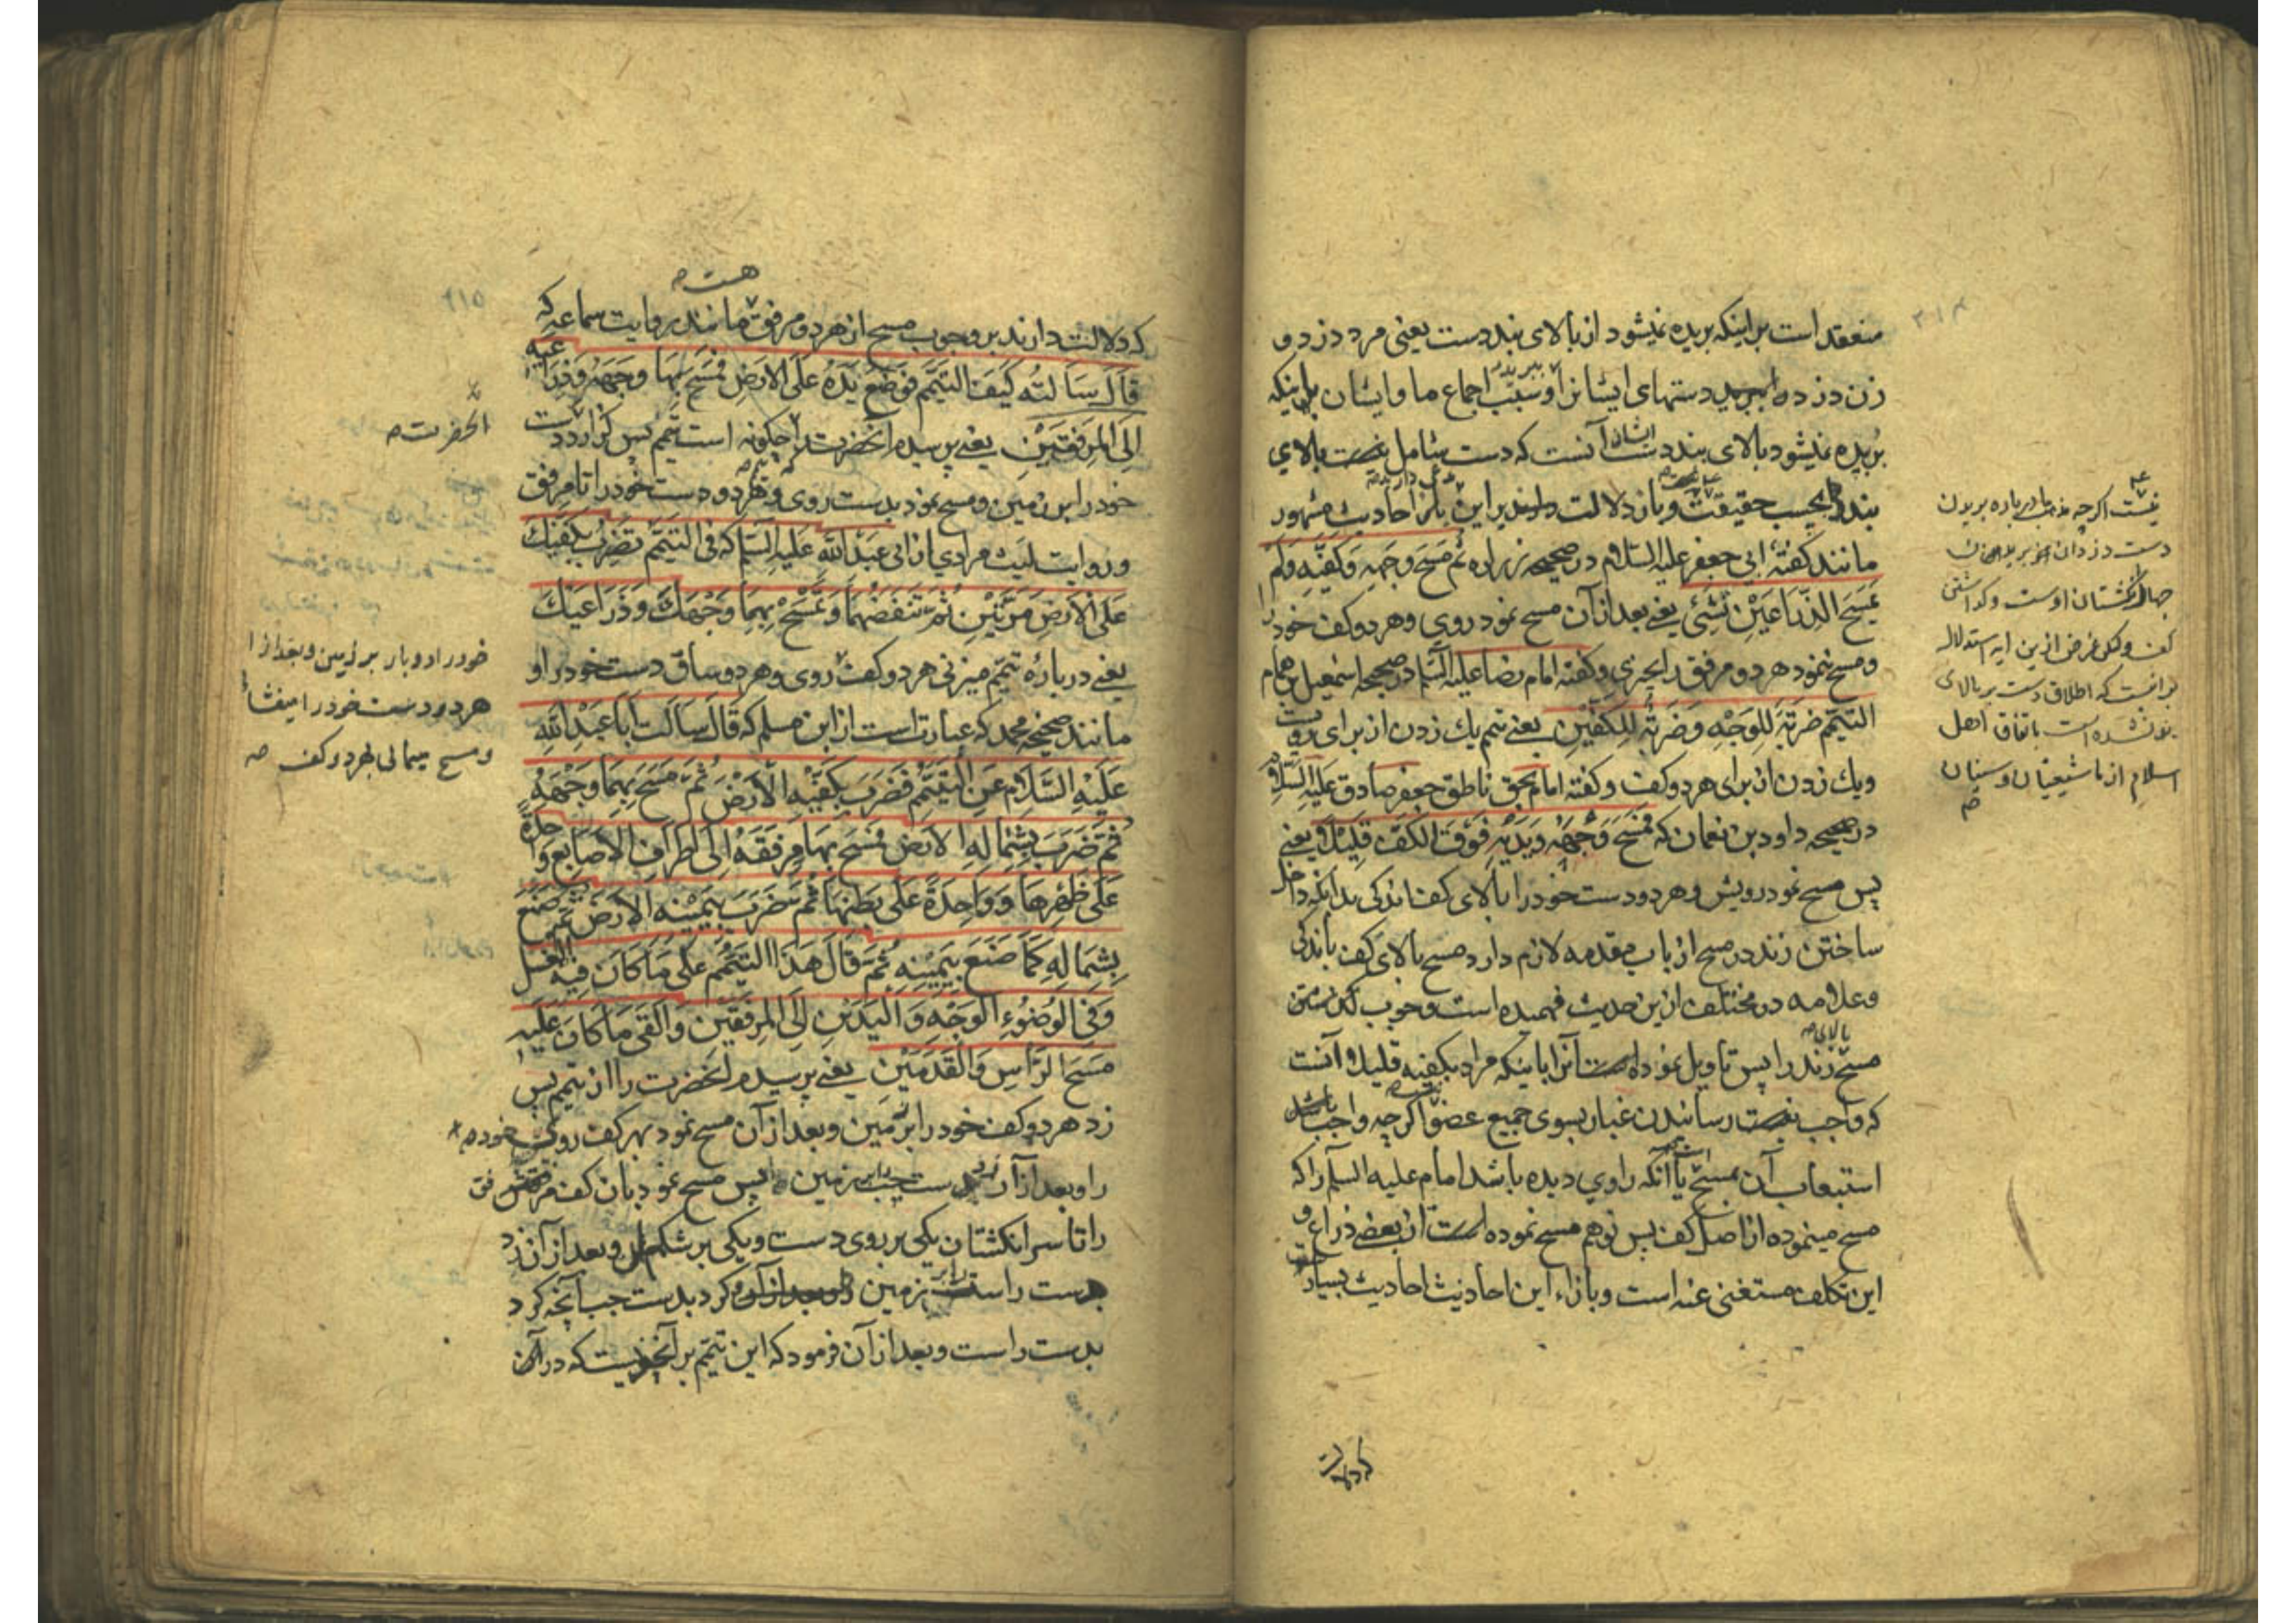 منعقد است بر اینکه بریده نمیشود از بالای بند دست یعنی مرد دزد و
زن دزده ببرید دستهای ایشانرا و سبب اجماع ما و ایشان باینکه
بریده نمیشود بالای بند دست ایشان آنست که دست شامل نیست بالای
بند را بحسب حقیقت و باز دلالت دارند براین احادیث مشهور
مانند کفتهٔ ابی جعفر علیه السلام در صحیحه زراره ثُم مَسَحَ وَجهِه وَکَفَّیهِ وَلَم
یَمسَحِ الذِّرَاعَیْنِ بِشَیْءٍ یعنی بعد از آن مسح نمود روی و هر دو کف خود را
و مسح ننمود هر دو مرفق را بچیزی و کفته امام رضا علیه السلام در صحیحه اسمعیل بن همام
التیمّم ضَربَةٌ لِلوَجْهِ وَضَربَةٌ لِلکَفَّیْنِ یعنی تیمم یك زدن از برای رویست
و یك زدن از برای هر دو کف و کفته امام بحق ناطق جعفر صادق علیه السلام
در صحیحه داود بن نعمان که فَمَسَحَ وَجْهَهُ وَیَدَیْهِ فَوْقَ الکَفِّ قَلِیلاً یعنی
پس مسح نمود رویش و هر دو دست خود را بالای کف اندکی بدانکه داخل
ساختن زند در مسح از باب مقدمه لازم دارد مسح بالای کف باندکی
و علامه در مختلف از این حدیث فهمیده است وجوب کذشتن
مسح بالای زند را پس تاویل نموده است آنرا باینکه مراد بکفته قلیلا آنست
که واجب نیست رسانیدن غبار بسوی جمیع عضو اکرچه واجب باشد
استیعاب آن بمسح یا آنکه راوی دیده باشد امام علیه السلم را که
مسح مینموده از اصل کف پس توهم مسح نموده است از بعضی ذراع و
این تکلف مستغنی عنه است و بازاء این احادیث احادیث بسیار
که دلالت
نیست اکرچه مذهب ما درباره بریدن
دست دزدان
چهار انکشتان اوست و کذاشتن
کف و لکن غرض ازین ایه استدلال
برآنست که اطلاق دست بر بالای
بند نشده است باتفاق اهل
اسلام از ما شیعیان و سنیان
هست
که دلالت دارند بر وجوب مسح از هر دو مرفق مانند روایت سماعه که
قَالَ سَألتُهُ کَیفَ التیَمّم فوَضَعَ یَدَهُ عَلَی الاَرضِ فَمَسَحَ بِهَا وَجهَهُ وَذِرَاعَیهِ
اِلَی المِرفَقَیْنِ یعنی پرسیدم آنحضرت را چکونه است تیمم پس کزارد دست
خود را بر زمین و مسح نمود بدست روی و هر دو دست خود را تا مرفق
و روایت لیث مرادی از ابی عبد الله علیه السلم که فی التیمّم تَضرِبُ بِکَفَّیْكَ
عَلَی الاَرضِ مَرَّتَیْنِ ثُمَّ تَنفُضُهُمَا وَتَمْسَحُ بِهِمَا وَجْهَكَ وَذِرَاعَیْكَ
یعنی درباره تیمّم میزنی هر دو کف روی و هر دو ساق دست خود را و
مانند صحیحه محمد که عبارت است از ابن مسلم که قالَ سَالَت اَبَا عَبْدِ اللهِ
عَلَیْهِ السَّلَام عَنِ التیَمُّم فَضَرَبَ بِکَفَّیْهِ الاَرْضَ ثُمَّ مَسَحَ بِهِمَا وَجْهَهُ
ثُمَّ ضَرَبَ بِشِمَالِهِ الاَرضَ فَمَسَحَ بِهَا مِرفَقَهُ اِلَی اَطرَافِ الاَصَابِعِ وَاحِدَةً
عَلَی ظَهْرِهَا وَوَاحِدَةً عَلَی بَطنِهَا ثُمَّ ضَرَبَ بِیَمِیْنِهِ الاَرضَ ثُمَّ صَنَعَ
بِشِمَالِهِ کَمَا صَنَعَ بِیَمِیْنِهِ ثُمَّ قَالَ هَذَا التَیَمُّم عَلَی مَا کَانَ فِیهِ الغُسْل
وَفِی الوُضُوءِ الوَجْهَ وَالْیَدَیْنِ اِلَی المِرفَقَیْنِ وَاَلْقَی مَا کَانَ عَلَیهِ
مَسحُ الرَّاسِ وَالقَدَمَیْن یعنی پرسیدم آنحضرت را از تیمم پس
زد هر دو کف خود را بر زمین و بعد از آن مسح نمود بهر کف روی خود
را و بعد از آن زد دست چپ را بر زمین پس مسح نمود بآن کف مرفق
را تا سر انکشتان یکی بر روی دست و یکی بر شکم آن و بعد از آن زد
دست راست را بر زمین و کرد بدست چپ آنچه کرد
بدست راست و بعد از آن فرمود که این تیمّم بر آنچیزیست که در آن
آنحضرت
خود را دو بار بر زمین و بعد از آن
هر دو دست خود را میفشانی
و مسح میمالی بهر دو کف